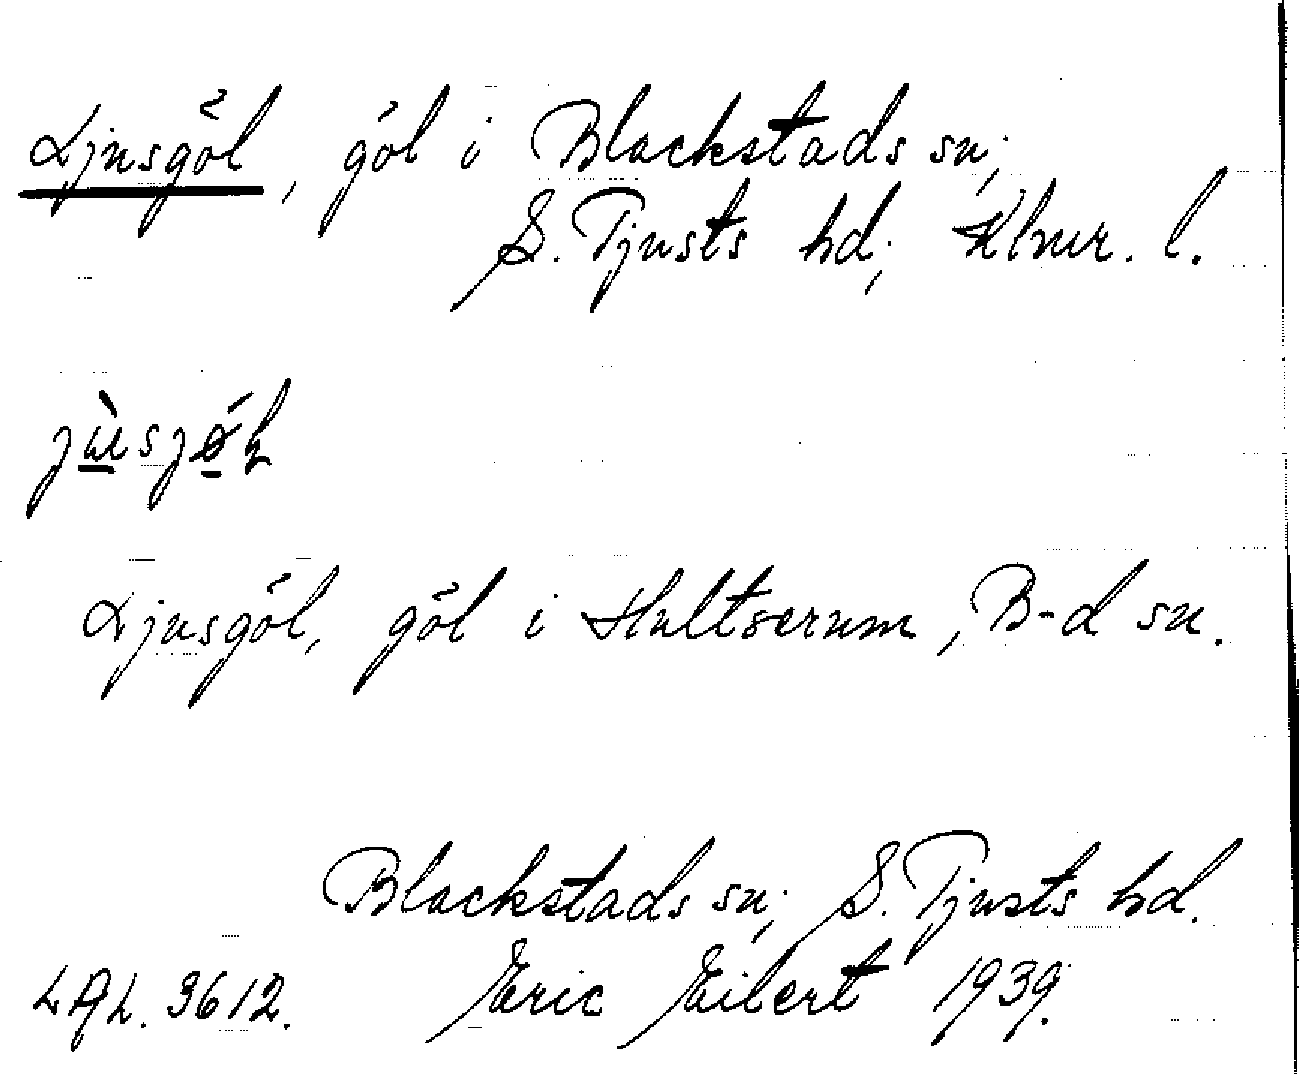 Ljusgöl, göl i Blackstads sn;
S. Tjusts hd; Klmr. l.
Ljusgöl, göl i Hultserum, B-d sn.
Blackstads sn; S. Tjusts hd.
LAL. 3612. Eric Eilert 1939.